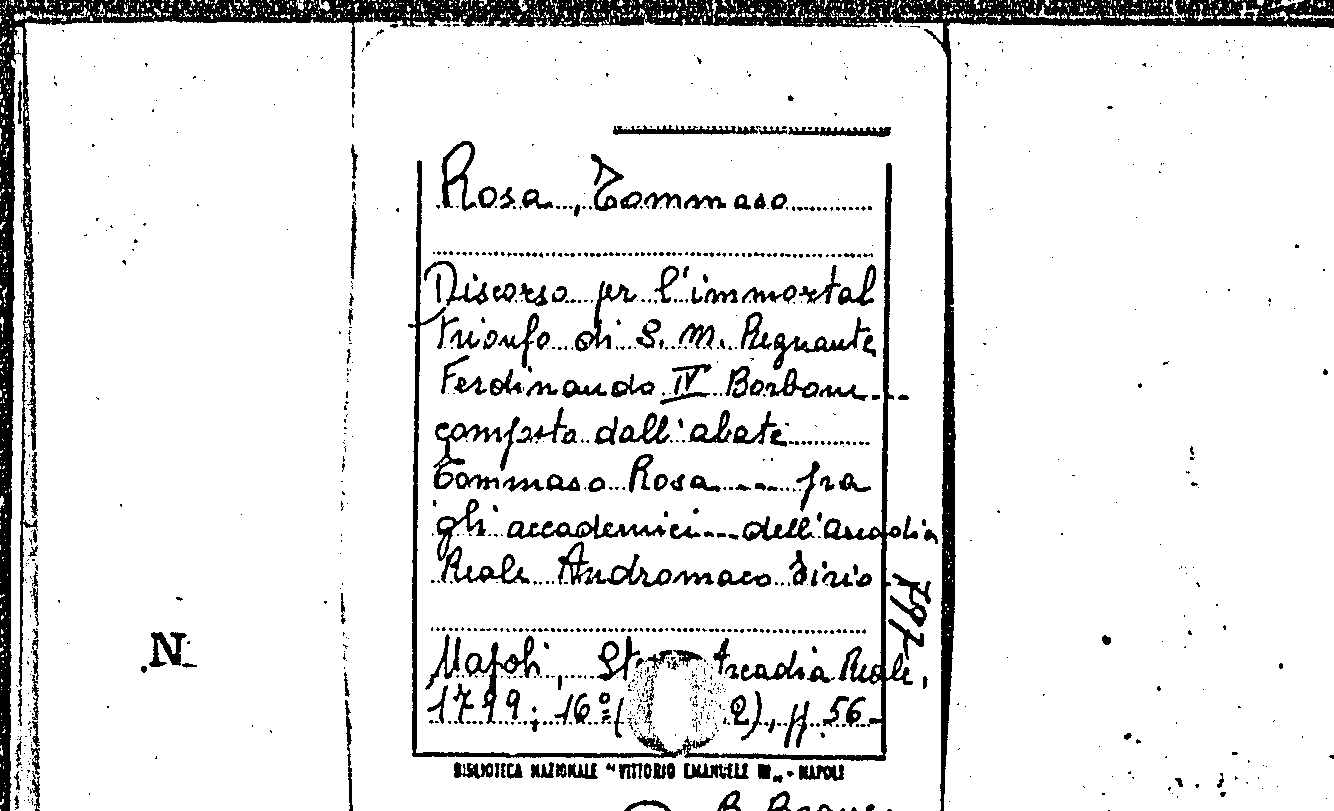 Rosa, Tommaso
Discorso per l'immortal
trionfo di S. M. Regnante
Ferdinando IV Borbone...
composto dall'abate
Tommaso Rosa .... fra
gli accademici .... dell'arcadia
Reale Andromaco Sirio
797
Napoli, Arcadia Reale,
1799; 16º ( 2), pp. 56-
BIBLIOTECA NAZIONALE "VITTORIO EMANUELE III" - NAPOLI
N
B.